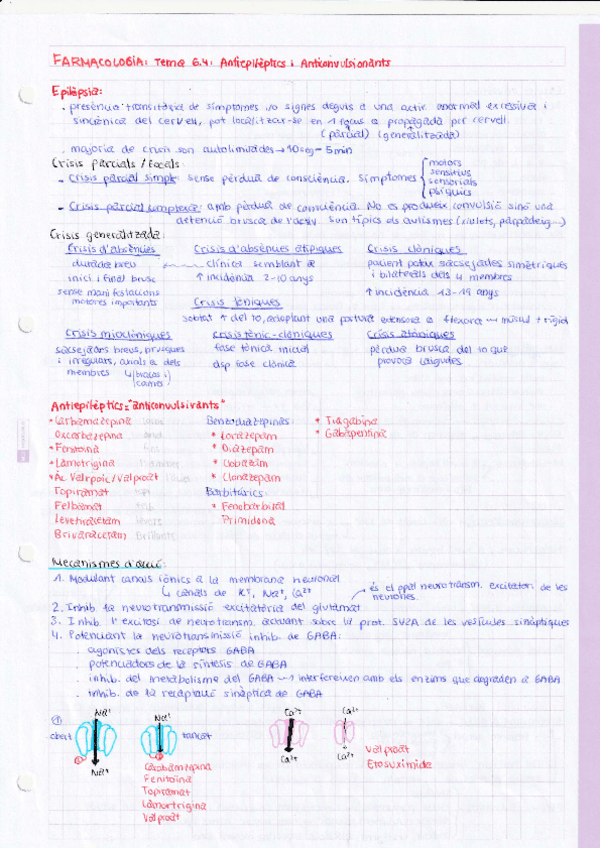 FARMACOLOGIA: Tema 6.4: Antiepilèptics i Anticonvulsionants
Epilèpsia:
· presència transitòria de símptomes i/o signes deguts a una activ. anormal excessiva i
sincrònica del cervell, pot localitzar-se en 1 focus o propagada per cervell.
(parcial) (generalitzada)
· majoria de crisis son autolimitades → 10seg - 5min
Crisis parcials / focals:
- Crisis parcial simple: sense pèrdua de consciència. símptomes
motors
sensitius
sensorials
psíquics
- Crisis parcial complexa: amb pèrdua de consciència. No es produeix convulsió sinó una
detenció brusca de l'activ. Son típics els autismes (xiulets, parpadeig...)
Crisis generalitzada:
Crisis d'absències
durada breu
inici i final brusc
sense manifestacions
motores importants
Crisis d'absències atípiques
clínica semblant a
↑ incidència 2-10 anys
Crisis clòniques
pacient pateix sacsejades simètriques
i bilaterals dels 4 membres
↑ incidència 13-19 anys
Crisis tòniques
sobtat ↑ del to, adoptant una postura extensora o flexora → múscul + rígid
Crisis mioclòniques
sacsejades breus, brusques
i irregulars, axials o dels
membres
braços i
cames
Crisis tònic-clòniques
fase tònica inicial
dsp fase clònica
Crisis atòniques
pèrdua brusca del to que
provoca caigudes
Antiepilèptics = "anticonvulsivants"
* Carbamazepina
Oxcarbazepina
* Fenitoïna
* Lamotrigina
* Àc Valrpoic / Valproat
Topiramat
Felbamat
Levetiracetam
Brivaracetam
Benzodiazepines
* Lorazepam
* Diazepam
* Clobazam
* Clonazepam
Barbitúrics:
* Fenobarbital
Primidona
* Tiagabina
* Gabapentina
Mecanismes d'acció:
1. Modulant canals iònics a la membrana neuronal
↳ canals de K⁺, Na⁺, Ca²⁺
2. Inhib la neurotransmissió excitatòria del glutamat
→ és el ppal neurotransm. excitatori de les
neurones.
3. Inhib. l'excitosi de neurotransm. actuant sobre la prot. SV2A de les vesícules sinàptiques
4. Potenciant la neurotransmissió inhib. de GABA:
· agonistes dels receptors GABA
· potenciadors de la síntesis de GABA
· inhib. del metabolisme del GABA → interfereixen amb els enzims que degraden a GABA
· inhib. de la recaptació sinàptica de GABA
①
obert
Na⁺
Na⁺
Na⁺
tancat
Carbamazepina
Fenitoïna
Topiramat
Lamortrigina
Valproat
Ca²⁺
Ca²⁺
Ca²⁺
Ca²⁺
Valproat
Etosuximida